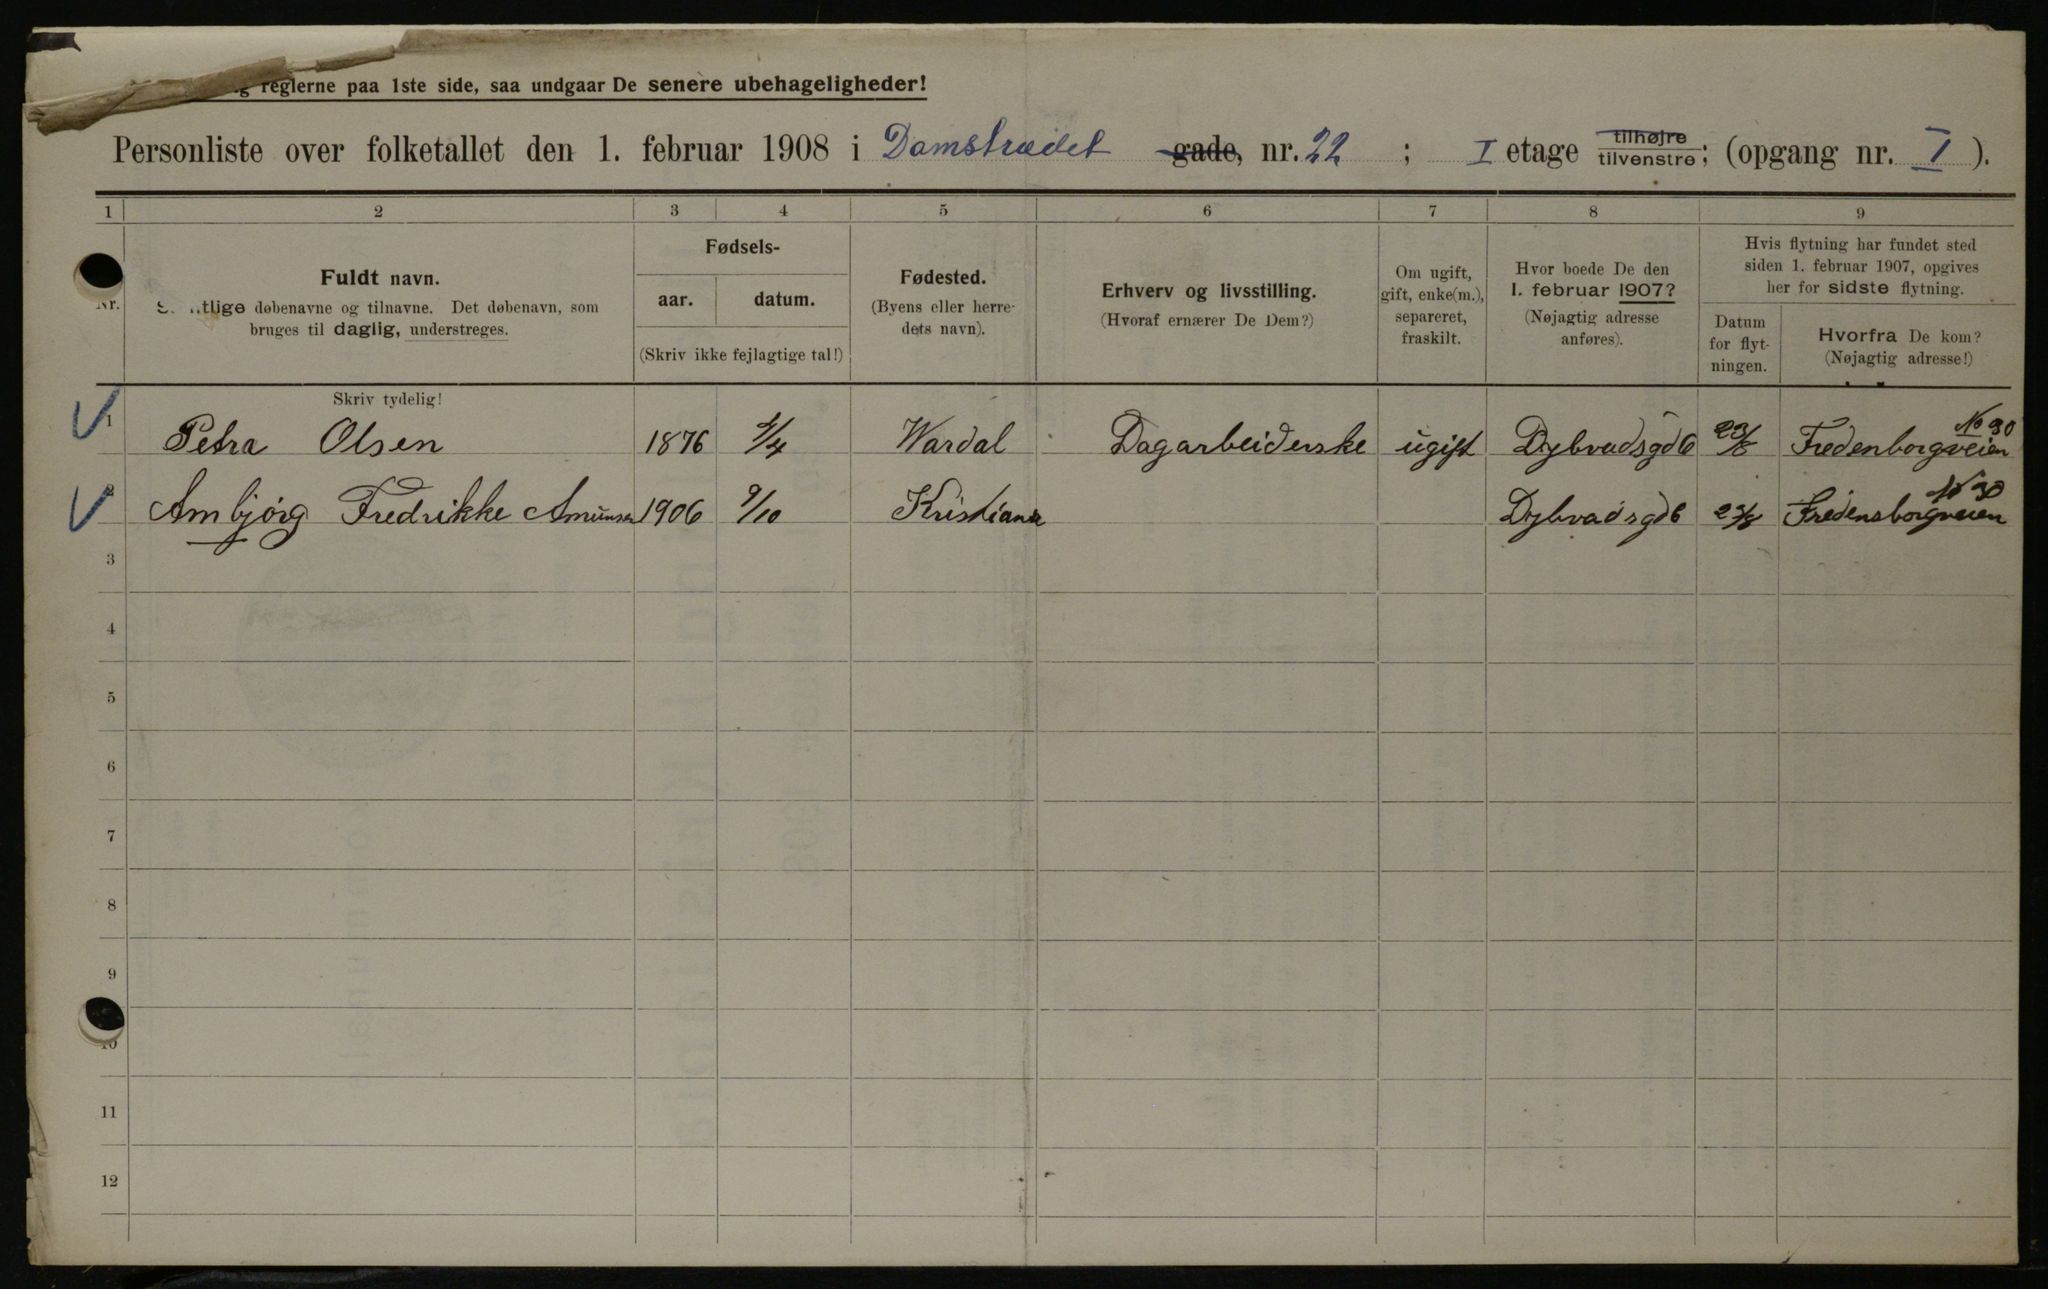 reglerne paa 1ste side, saa undgaar De senere ubehageligheder!
Personliste over folketallet den 1. februar 1908 i Damstrædet gade, nr. 22 ; I etage tilhøjre tilvenstre; (opgang nr. I ).
1 2 3 4 5 6 7 8 9
Nr.
Fuldt navn.
døbenavne og tilnavne. Det døbenavn, som
bruges til daglig, understreges.
Fødsels-
aar. datum.
(Skriv ikke fejlagtige tal!)
Fødested.
(Byens eller herre-
dets navn).
Erhverv og livsstilling.
(Hvoraf ernærer De Dem?)
Om ugift,
gift, enke(m.),
separeret,
fraskilt.
Hvor boede De den
1. februar 1907?
(Nøjagtig adresse
anføres).
Hvis flytning har fundet sted
siden 1. februar 1907, opgives
her for sidste flytning.
Datum
for flyt-
ningen.
Hvorfra De kom?
(Nøjagtig adresse!)
Skriv tydelig!
1 Petra Olsen 1876 Wardal Dagarbeiderske ugift Dybvadsgd 6 23/8 Fredenborgveien No 30
2 Ambjørg Fredrikke Amunsen 1906 9/10 Kristiania Dybvadsgd 6 23/8 Fredensborgveien No 30
3
4
5
6
7
8
9
10
11
12